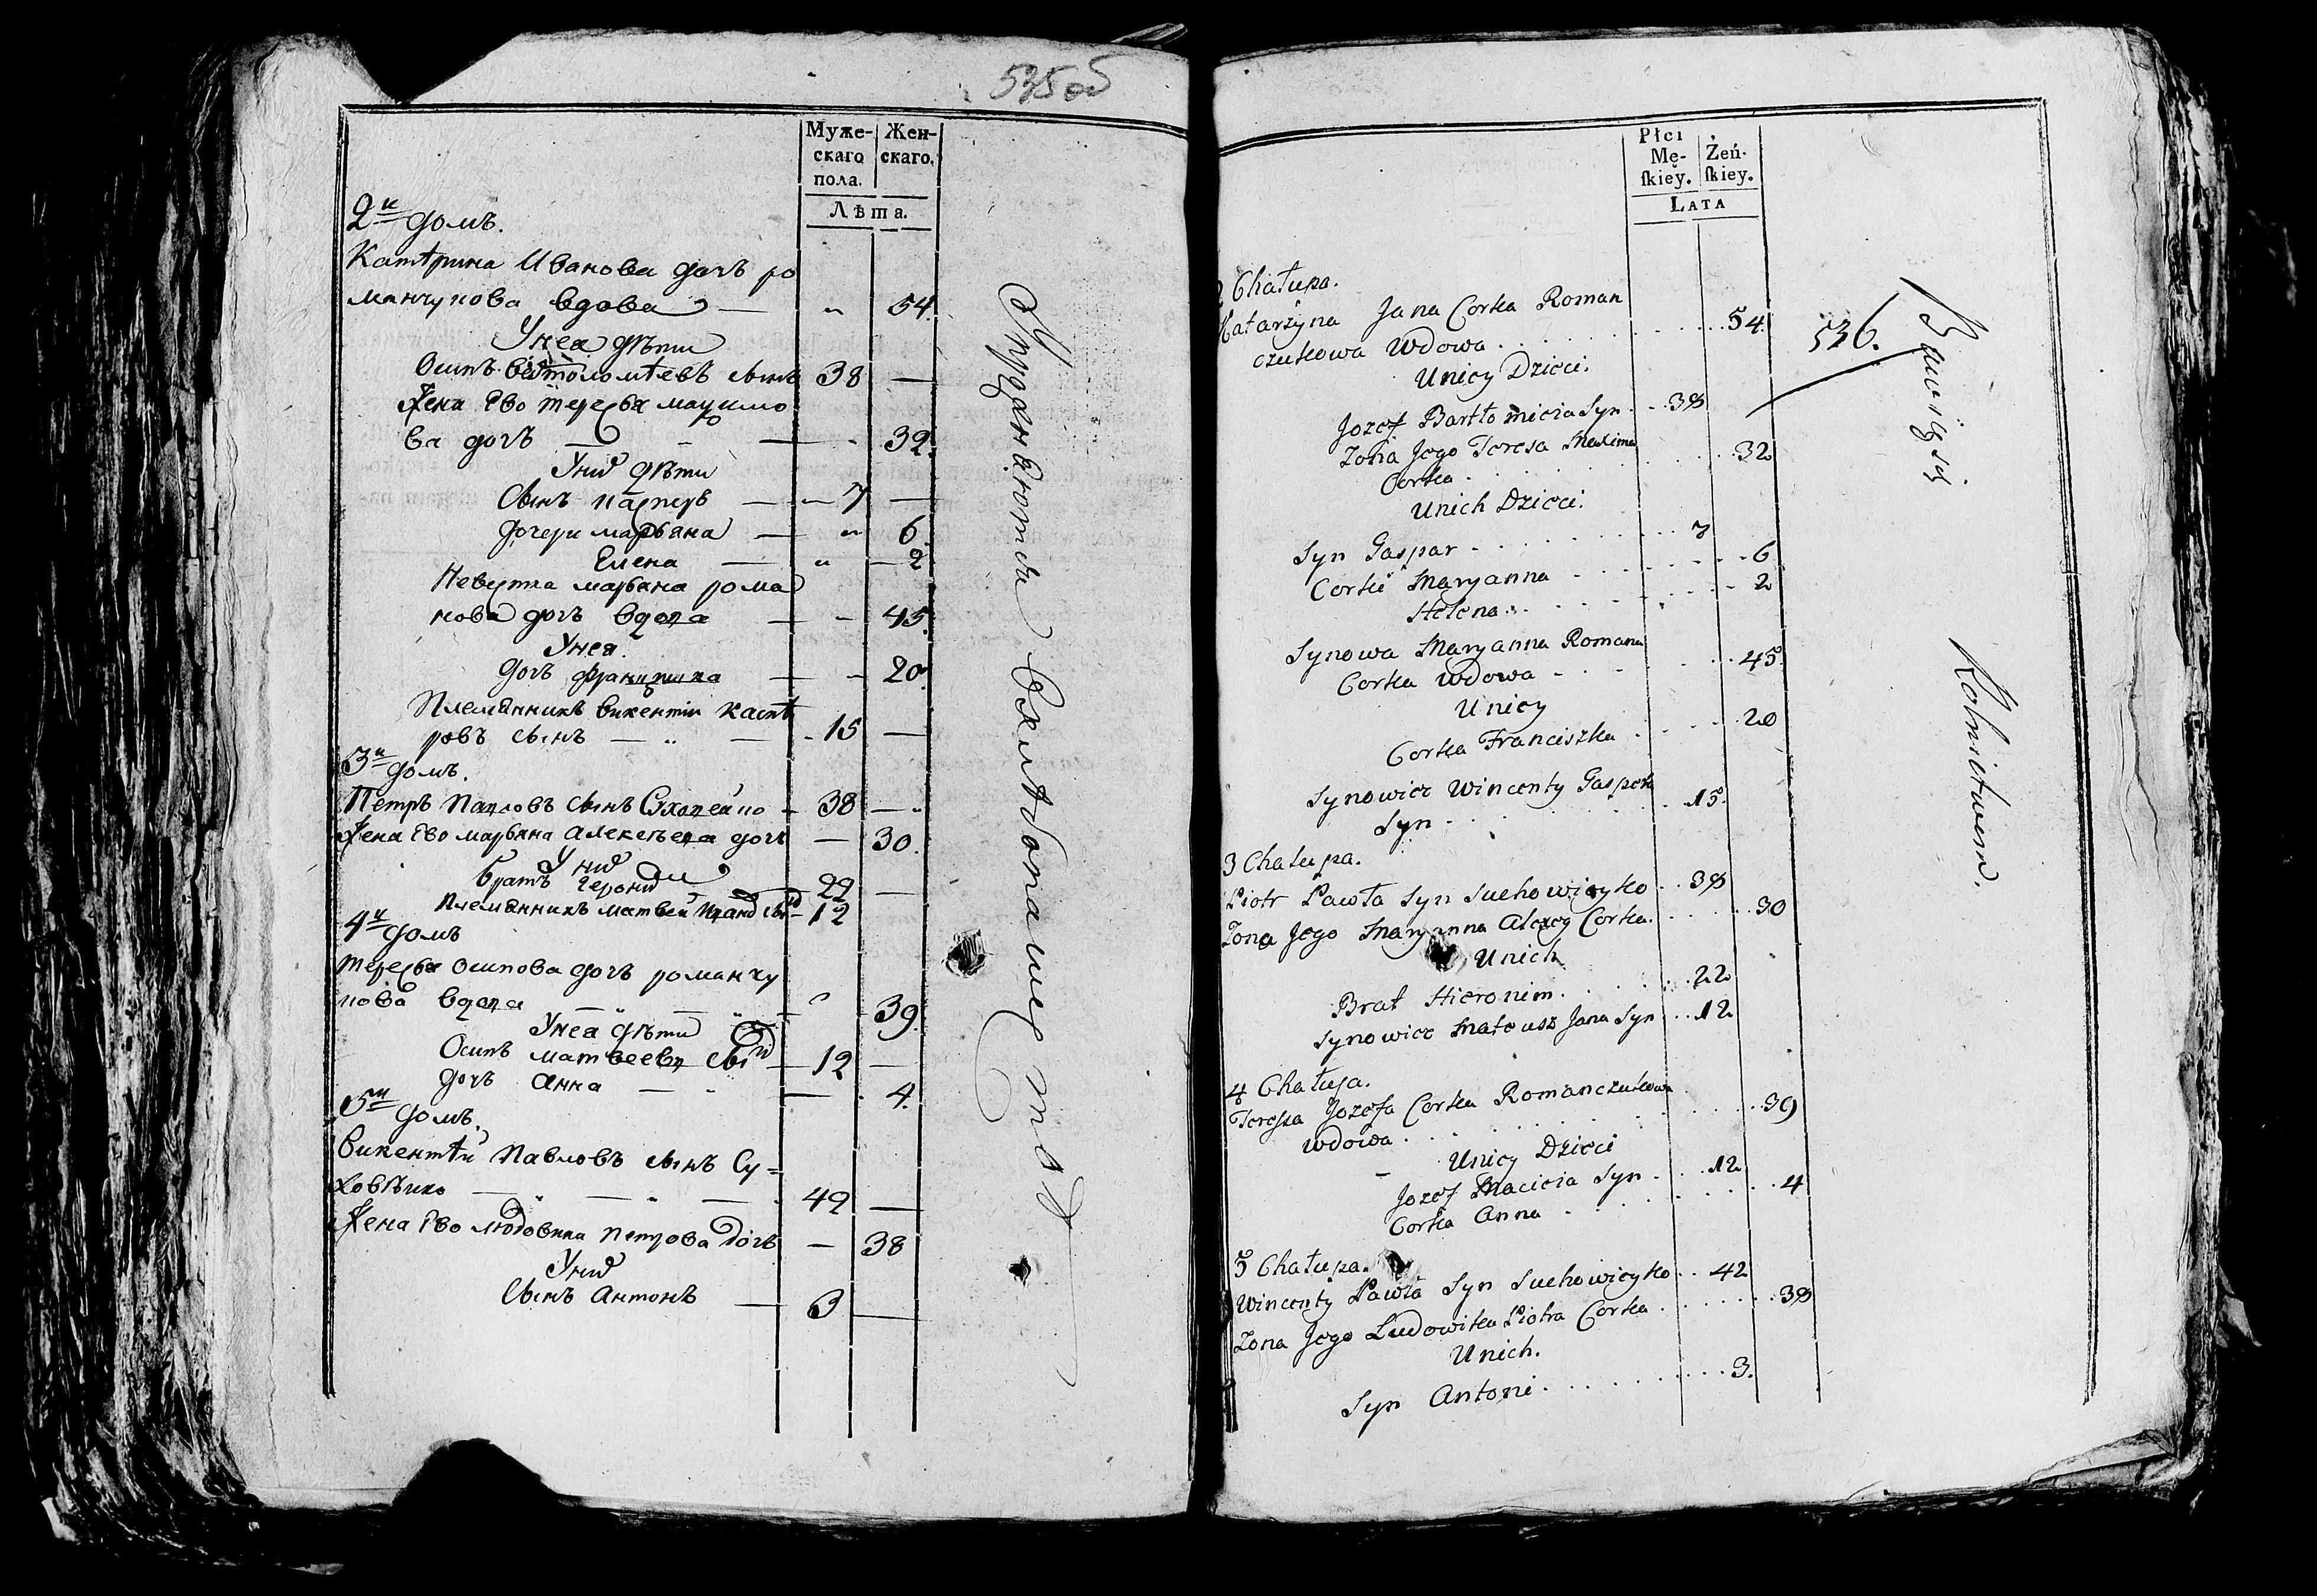 535об
Муже- Жен-
скаго скаго.
пола.
Лѣта.
2й домъ.
Катѣрина Иванова дочъ ро
манчукова вдова — „ 54.
Унея дѣти
Осипъ бартоломѣевъ сынъ 38 —
Жена Ево тересья мацимо
ва дочъ — 32.
Унихъ дѣти
Сынъ Касперъ — 7 —
дочери марьяна — „ 6.
Елена — „ 2
Невестка марьяна рома
нова дочъ вдова — 45.
Унея.
дочъ францишка — 20.
Племянникъ викентiи каспѣ
ровъ сынъ — „ — 15 —
3й домъ.
Петръ Павловъ сынъ Суховейко 38 —
Жена Ево марьяна алексѣева дочъ — 30.
Унихъ
братъ 22 —
Племянникъ матвей Ивановъ сынъ 12
4й домъ
тересья осипова дочъ романчу
кова вдова — „ — 39.
Унея дѣти
Осипъ матвеевъ сынъ 12 —
дочъ анна — 4.
5й домъ.
викентѣй Павловъ сынъ Су=
ховѣико — „ — „ — 42 —
Жена Ево людовика петрова дочъ — 38
Унихъ
Сынъ антонъ — 3 —
Упражняются в хлѣбопашествѣ
Płci
Mę- Żeń-
ſkiey. ſkiey.
LATA
2 Chałupa.
Katarzyna Jana Corka Roman
czukowa Wdowa . . . . . . 54.
Unicy Dzieci.
Jozef Bartłomieia Syn . . 38
Zona Jego Teresa Maxima
Corka . . . . . . 32
Unich Dzieci.
Syn Gaspar . . . . . . 7
Corki Maryanna . . . . . . 6
Helena . . . . . . 2
Synowa Maryanna Romana
Corka Wdowa . . . . . 45.
Unicy
Corka Franciszka . . . . 20
Synowiec Wincenty Gaspra
Syn . . . . . . 15.
3 Chałupa.
Piotr Pawła Syn Suchowieyko . . 38
Zona Jego Maryanna Alexey Corka. . . . . . 30
Unich
Brat Hieronim . . . . . . 22
Synowiec Mateusz Jana Syn . . 12
4 Chałupa.
Teressa Jozefa Corka Romanczukowa
Wdowa . . . . . . 39
Unicy Dzieci
Jozef Macieia Syn . . . 12
Corka Anna . . . . . . 4
5 Chałupa.
Wincenty Pawła Syn Suchowieyko . . 42
Zona Jego Ludowika Piotra Corka . . . . . . 38
Unich.
Syn Antoni . . . . . . 3.
536.
Bawią się
Rolnictwem.